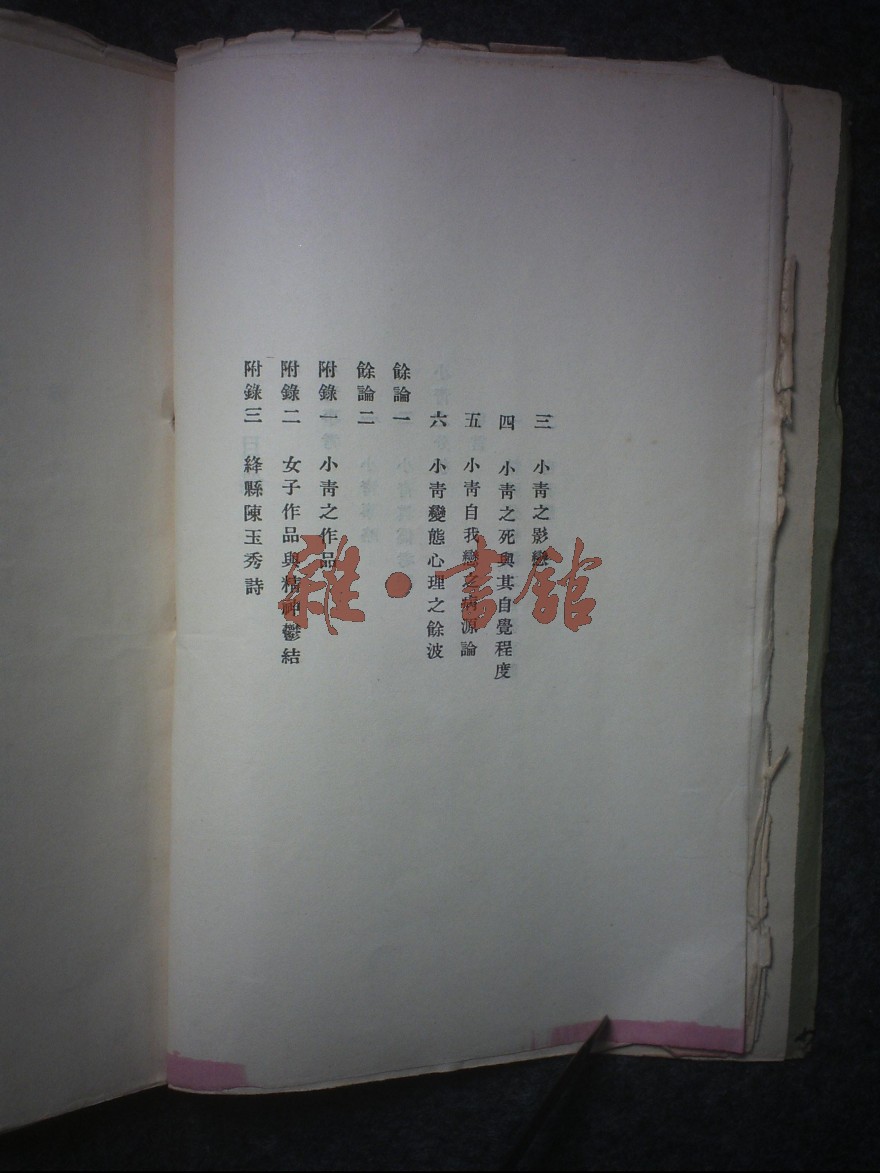 三 小青之影戀
四 小青之死與其自覺程度
五 小青自我戀之病源論
六 小青變態心理之餘波
餘論一
餘論二
附錄一 小青之作品
附錄二 女子作品與精神鬱結
附錄三 絳縣陳玉秀詩
雜·書館